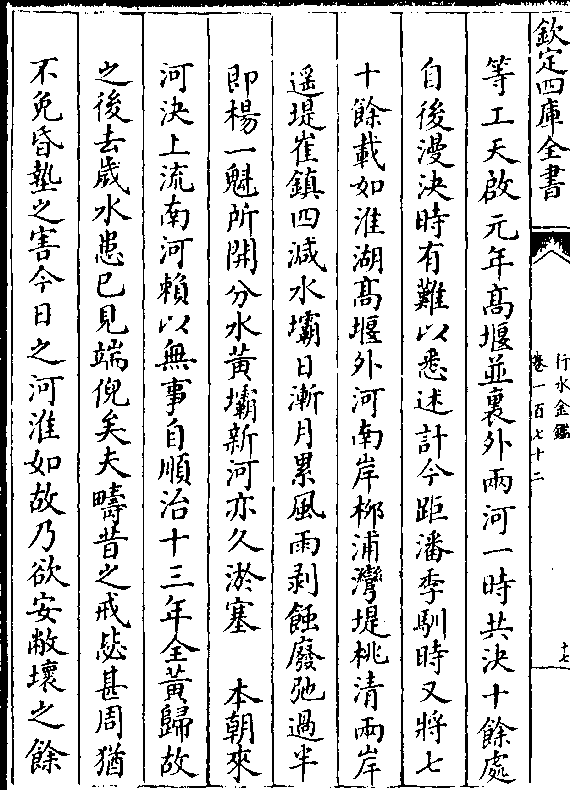 欽定四庫全書
行水金鑑
卷一百七十二
十七
等工天啟元年高堰並裏外兩河一時共決十餘處
自後漫決時有難以悉述計今距潘季馴時又將七
十餘載如淮湖高堰外河南岸柳浦灣堤桃清兩岸
遥堤崔鎮四減水壩日漸月累風雨剥蝕廢弛過半
即楊一魁所開分水黄壩新河亦久淤塞　本朝來
河決上流南河賴以無事自順治十三年全黄歸故
之後去歲水患已見端倪矣夫疇昔之戒毖甚周猶
不免昏墊之害今日之河淮如故乃欲安敝壞之餘